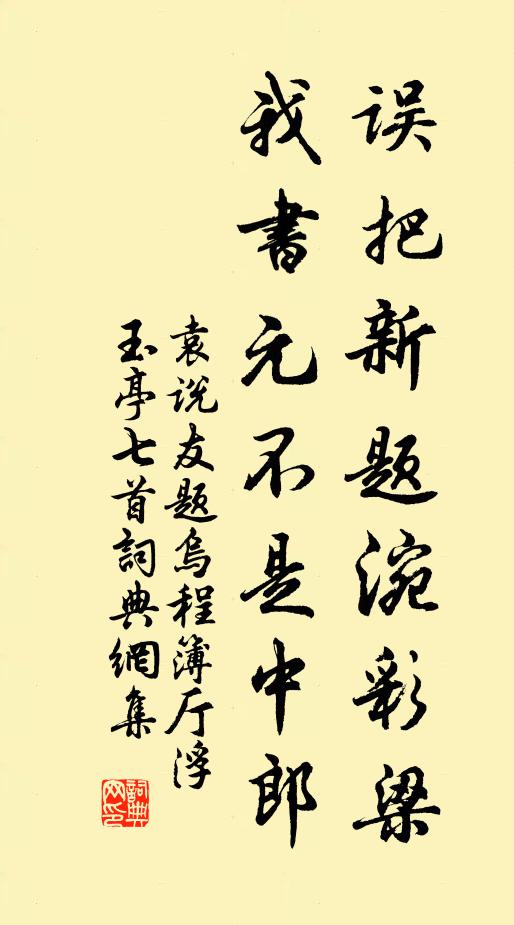 误把新题涴彩梁
我書元不是中郎
袁说友题乌程簿厅浮
玉亭七首詞典網集
詞典网印